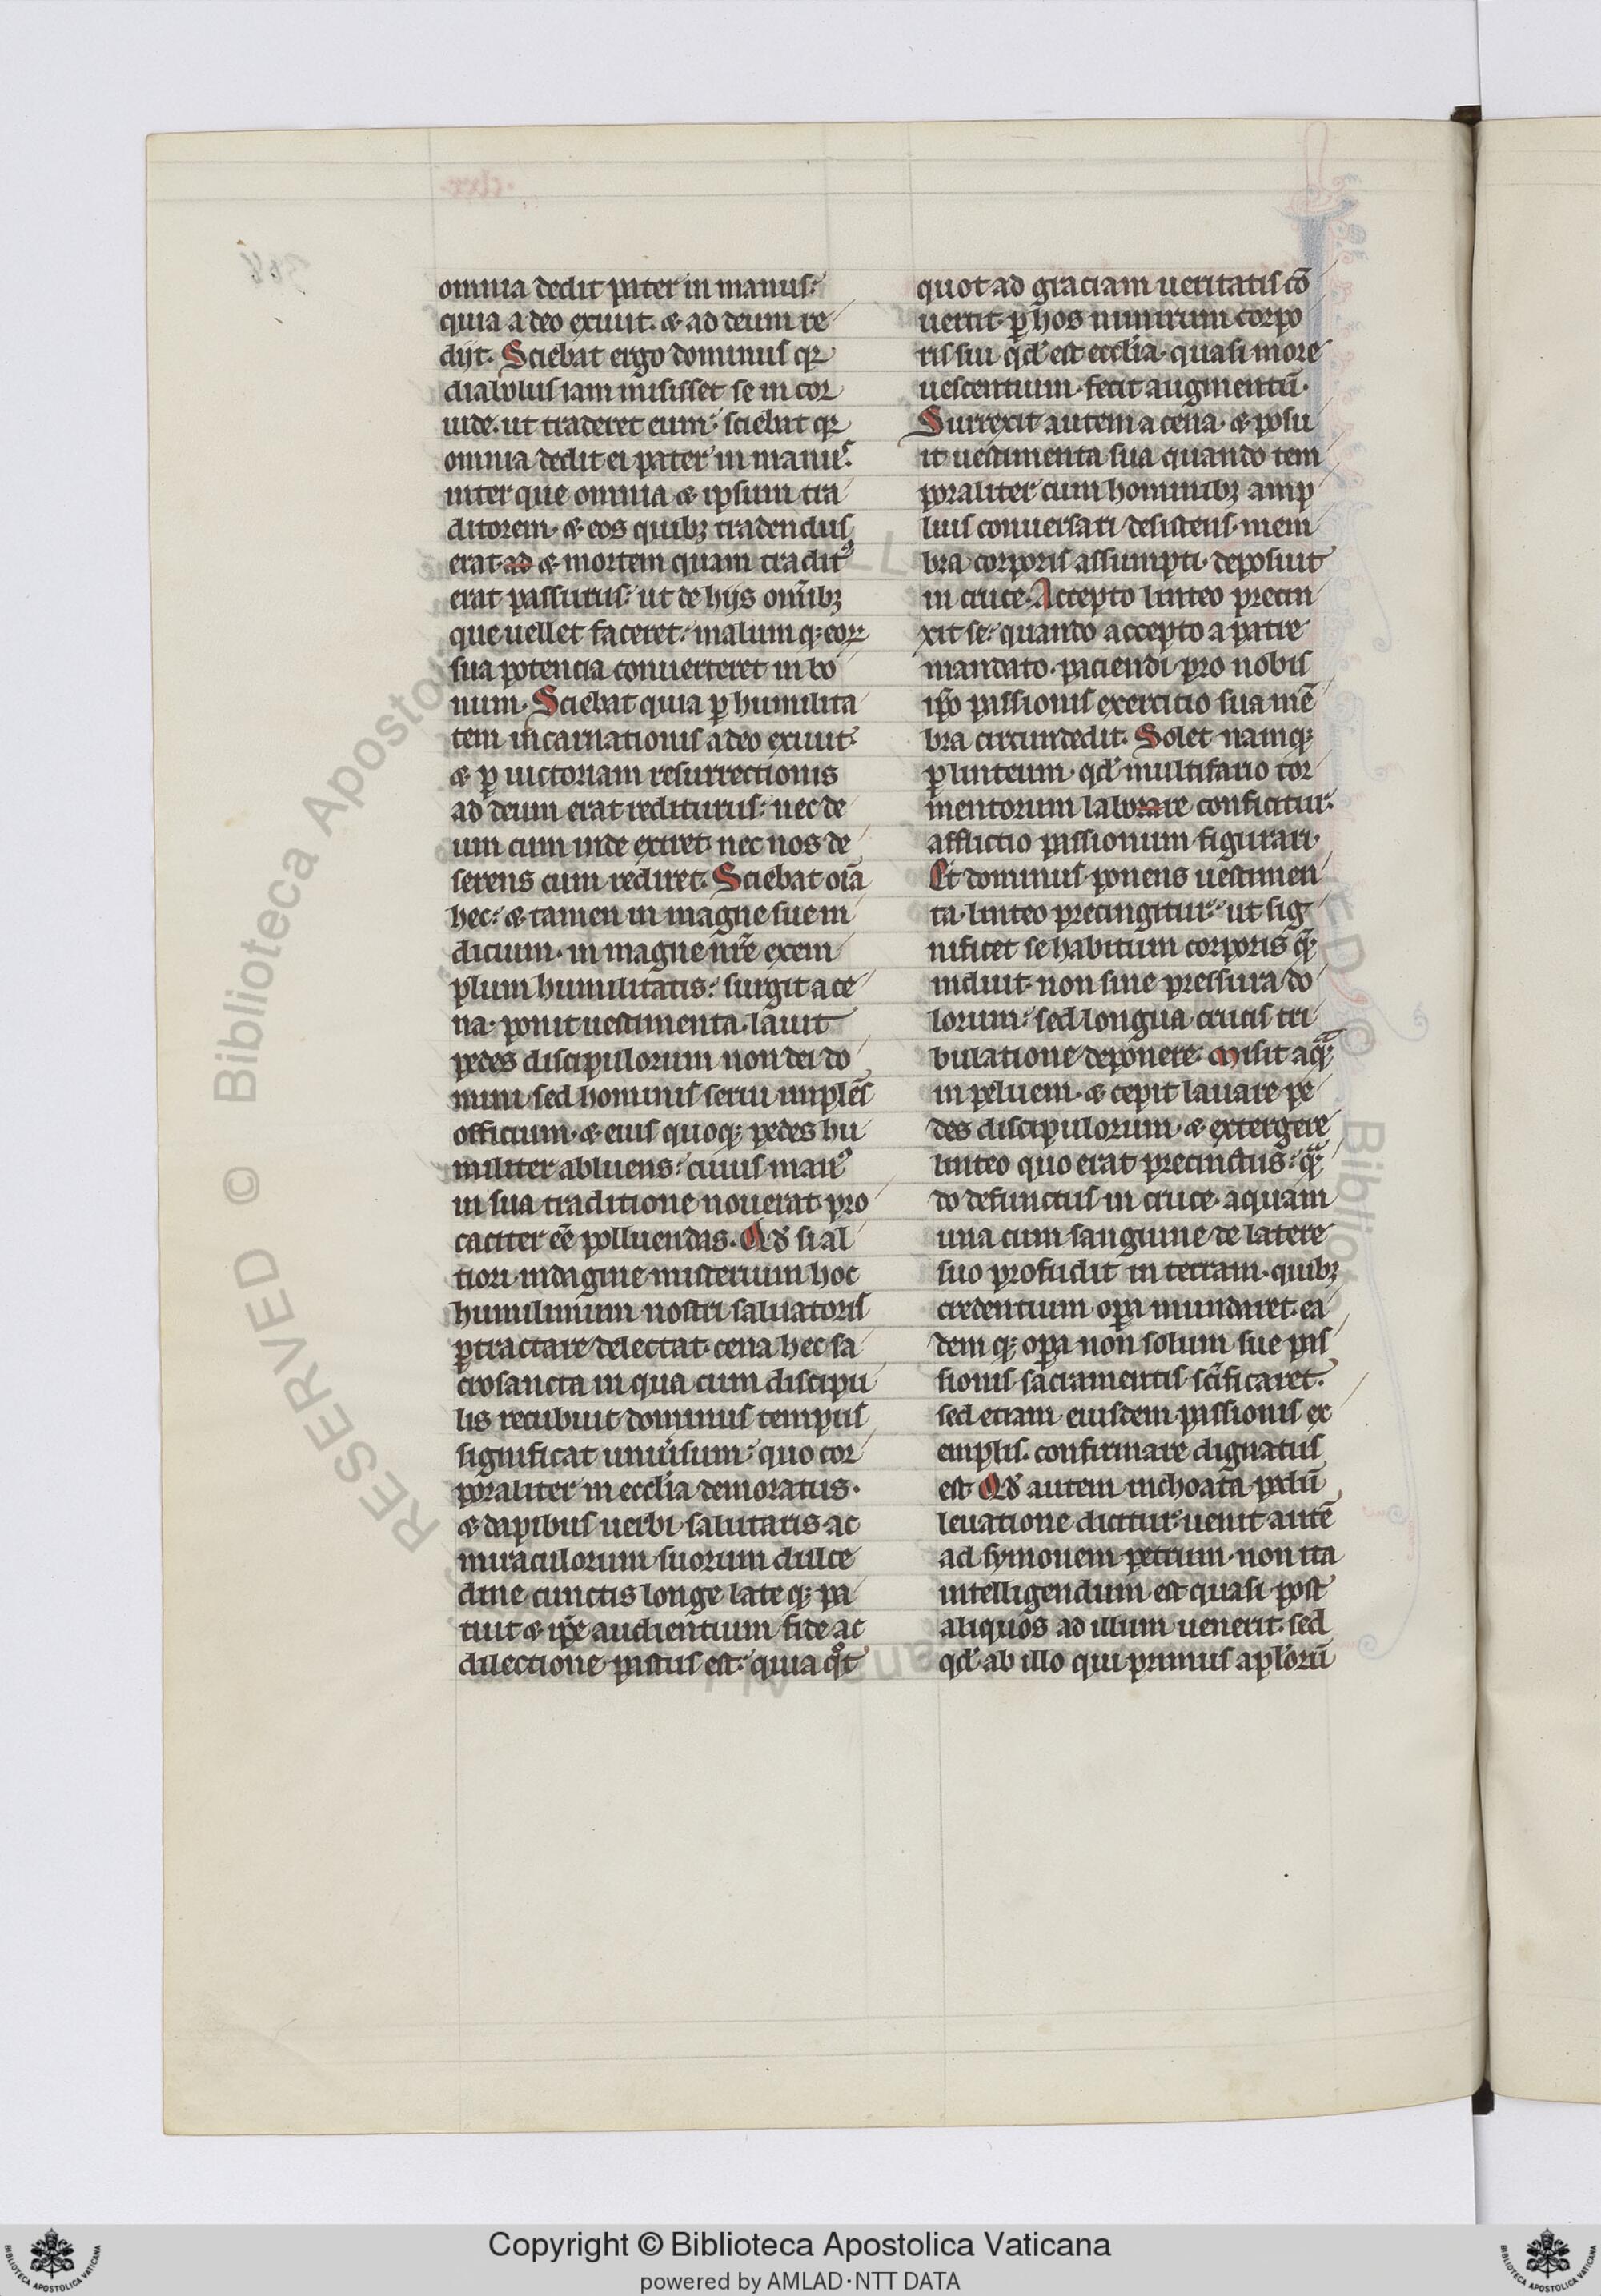 omnia dedit pater in manus:
quia a deo exiuit. & ad deum re
dijt. Sciebat ergo dominus qꝛ
diabolus iam misisset se in cor
iude. ut traderet eum: sciebat qꝛ
omnia dedit ei pater in manus.
inter que omnia & ipsum tra
ditorem. & eos quibꝫ tradendus
erat ad & mortem quam traditꝰ
erat passurus: ut de hijs om̄ibꝫ
que uellet faceret: malum qꝫ eoꝝ
sua potencia conuerteret in bo
num. Sciebat quia ꝑ humilita
tem incarnationis a deo exiuit.
& ꝑ uictoriam resurrectionis
ad deum erat rediturus: nec de
um cum inde exiret. nec nos de
serens cum rediret. Sciebat oīa
hec: & tamen in magne sue in
dicium. in magne nr̄e exem
plum humilitatis: surgit a ce
na. ponit uestimenta. lauit
pedes discipulorum non dei do
mini sed hominis serui implēs
officium. & eius quoqꝫ pedes hu
militer abluens: cuius manꝰ
in sua traditione nouerat pro
caciter eē polluendas. Qd̓ si al
tiori indagine misterium hoc
humilimum nostri saluatoris
ꝑtractare delectat. cena hec sa
crosancta in qua cum discipu
lis recubuit dominus tempus
significat uniu̓sum: quo cor
poraliter in eccl̓ia demoratus.
& dapibus uerbi salutaris ac
miraculorum suorum dulce
dine cunctis longe late qꝫ pa
tuit & ip̄e audientium fide ac
dilectione pastus est: quia qͦt
quot ad graciam ueritatis cō
uertit. ꝑ hos nimirum corpo
ris sui qd̓ est eccl̓ia. quasi more
uescentium. fecit augmentū.
Surrexit autem a cena. & posu
it uestimenta sua quando tem
poraliter cum hominibꝫ amp
lius conuersari desistens. mem
bra corporis assumpti. deposuit
in cruce. Accepto linteo precin
xit se: quando accepto a patre
mandato. paciendi pro nobis
ip̄o passionis exercicio sua mē
bra circundedit. Solet namqꝫ
ꝑ linteum. qd̓ multifario tor
mentorum laborare conficitur.
afflictio passionum figurari.
Et dominus ponens uestimen
ta. linteo precingitur: ut sig
nificet se habitum corporis q̄
induit. non sine pressura do
lorum: sed longua crucis tri
bulatione deponere. Misit aq̄ꝫ
in peluem. & cepit lauare pe
des discipulorum. & extergere
linteo quo erat precinctus: qᷓ
do defunctus in cruce. aquam
una cum sanguine de latere
suo profudit in terram. quibꝫ
credentium oꝑa mundaret. ea
dem qꝫ oꝑa non solum sue pas
sionis sacramentis sc̄ificaret.
sed etiam eiusdem passionis ex
emplis. confirmare dignatus
est. Qd̓ autem inchoata pedū
leuatione dicitur: uenit autē
ad symonem petrum. non ita
intelligendum est quasi post
aliquos ad illum uenerit. sed
qd̓ ab illo qui primus apl̓orū
RESERVED © Biblioteca Apostol
Copyright © Biblioteca Apostolica Vaticana
powered by AMLAD·NTT DATA